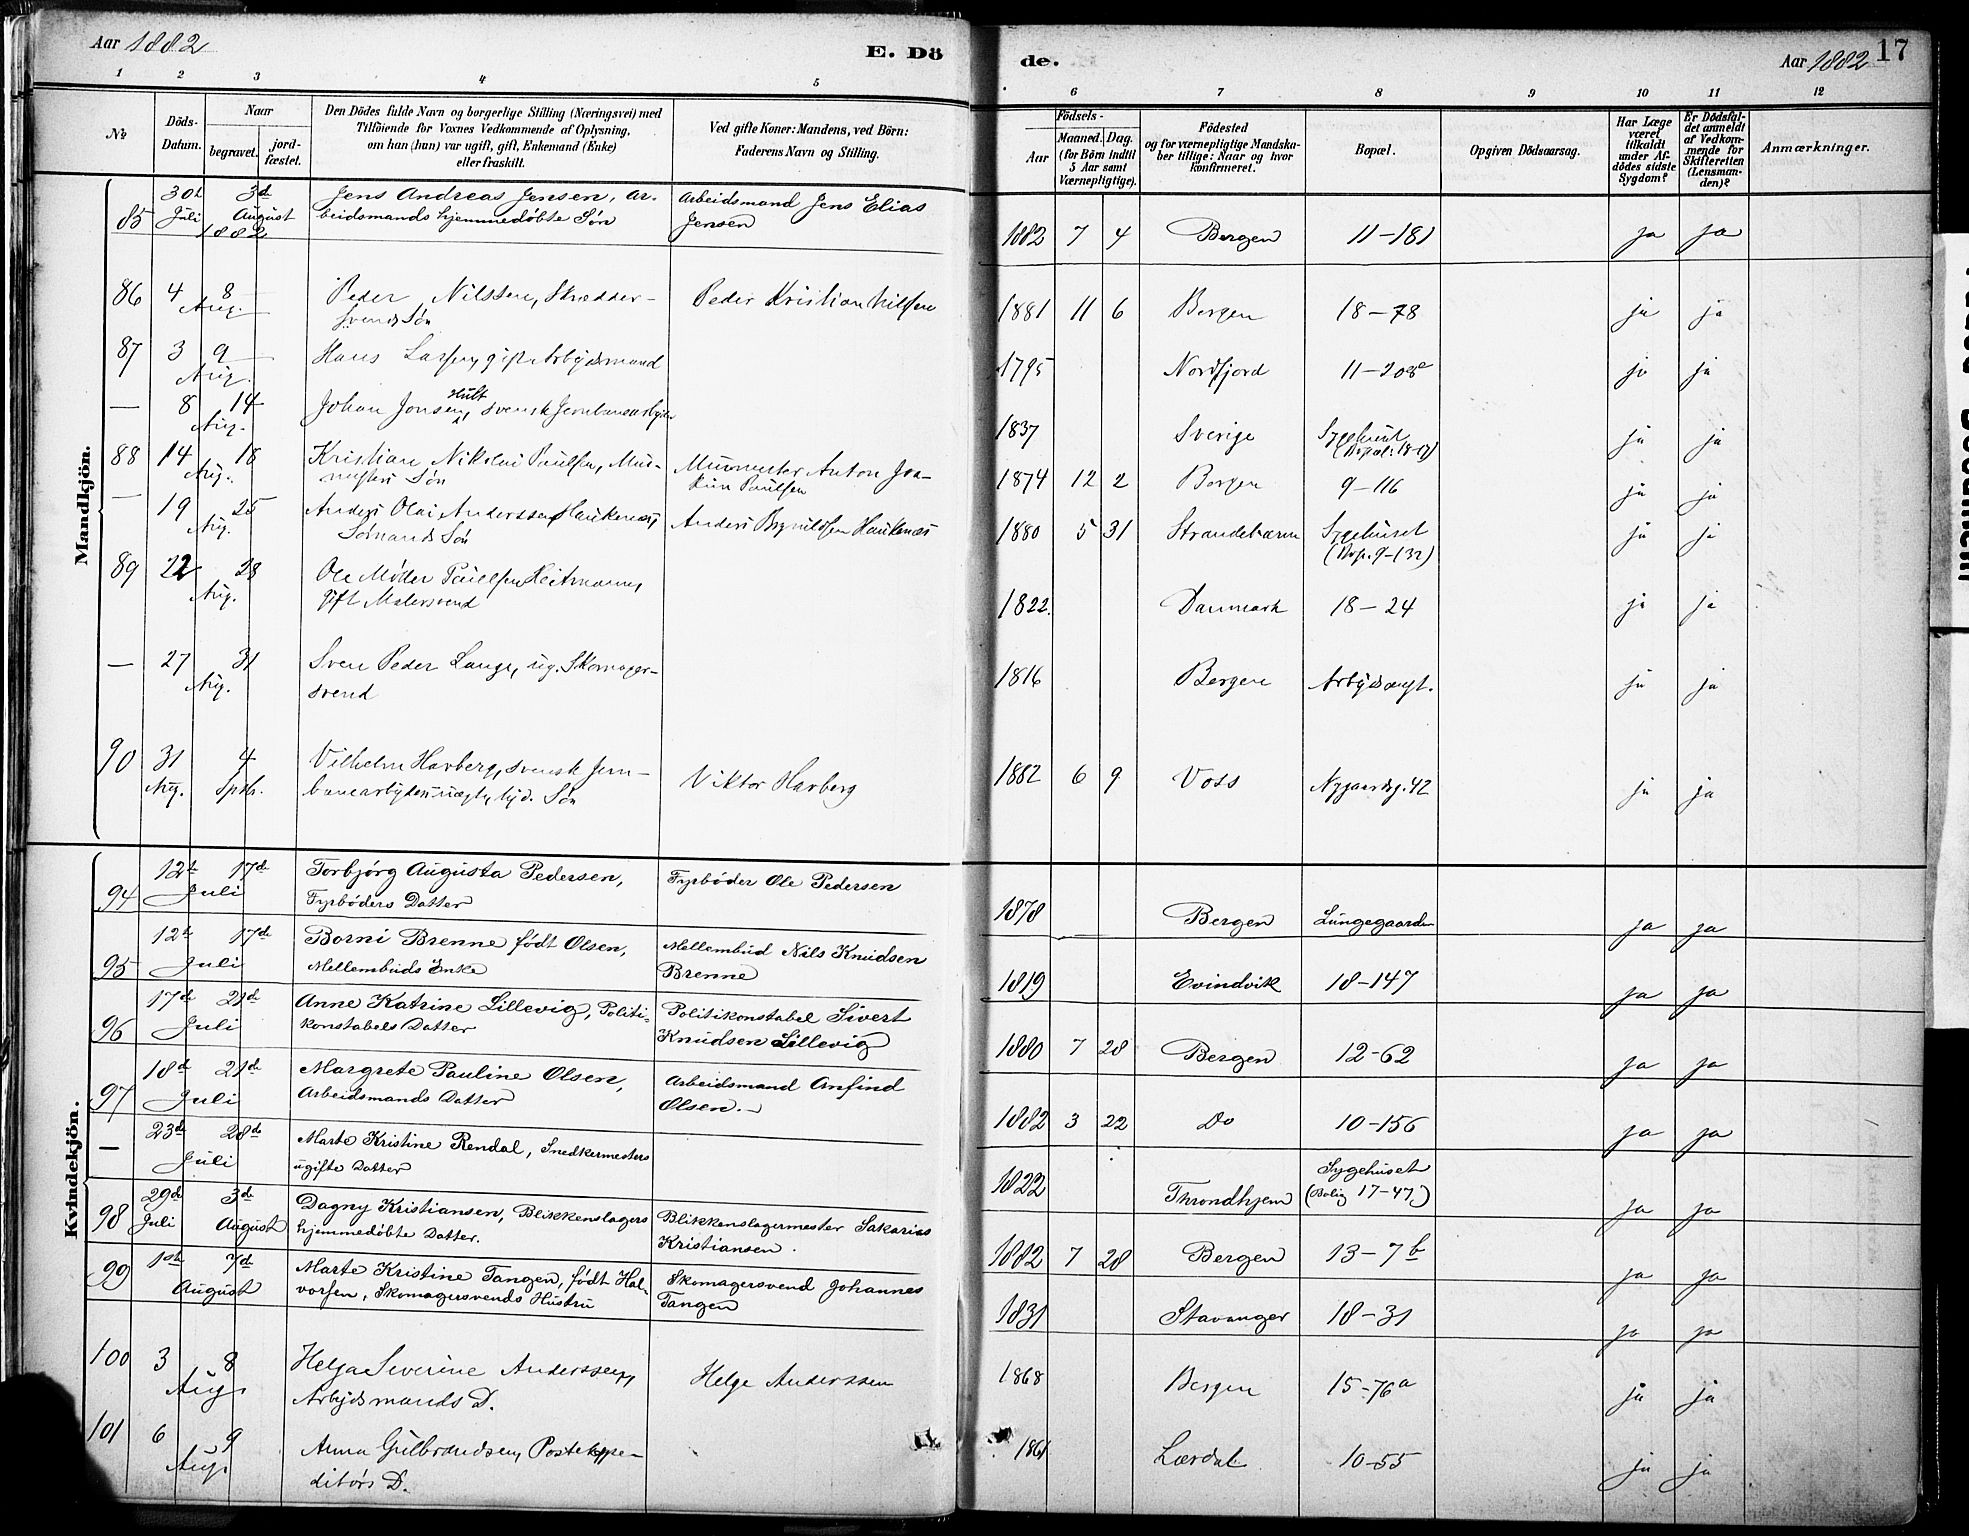 Aar 1882
E. Dö
de.
Aar 1882
17
1 2 3 4 5
6 7 8 9 10 11 12
№
Döds-
Datum.
Naar
begravet.
jord-
fæstet.
Den Dödes fulde Navn og borgerlige Stilling (Næringsvei) med
Tilföiende for Voxnes Vedkommende af Oplysning,
om han (hun) var ugift, gift, Enkemand (Enke)
eller fraskilt.
Ved gifte Koner: Mandens, ved Börn:
Faderens Navn og Stilling.
Födsels-
Aar
Maaned. Dag.
(for Börn indtil
5 Aar samt
Værnepligtige).
Födested
og for værnepligtige Mandska-
ber tillige: Naar og hvor
konfirmeret.
Bopæl.
Opgiven Dödsaarsag.
Har Læge
været
tilkaldt
under Af-
dödes sidste
Sygdom?
Er Dödsfal-
det anmeldt
af Vedkom-
mende for
Skifteretten
(Lensman-
den)?
Anmærkninger.
Mandkjön.
85 30t Juli 3d August 1882 Jens Andreas Jensen, Ar-
beidsmands hjemmedøbte Søn
Arbeidsmand Jens Elias
Jensen
1882 7 4 Bergen 11-181 ja ja
86 4 8 Aug. Peder Nilssen, Skrædder-
svends Søn
Peder Kristian Nilssen
1881 11 6 Bergen 18-78 ja ja
87 3 9 Aug. Hans Larsen, gift Arbejdsmand
1795 Nordfjord 11-208 ja ja
— 8 14 Aug. Johan Jonsen Hult, svensk Jernbanearbejder
1837 Sverige Sygehuset
(Bopæl: 18-17)
ja ja
88 14 18 Aug. Kristian Nikolai Paulsen, Mur-
mesters Søn
Murmester Anton Joa-
kim Paulsen
1874 12 2 Bergen 9-116 ja ja
— 19 25 Aug. Anders Olai Anderssen Haukenæs,
Sømands Søn
Anders Brynildsen Haukenæs
1880 5 31 Strandebarm Sygehuset
(Bop. 9-132)
ja ja
89 22 28 Aug. Ole Møder Paulsen Heitmann,
gift Malersvend
1822. Danmark 18-24 ja ja
— 27 31 Aug. Sven Peder Lange, ug. Skomager-
svend
1816 Bergen Arbejdsanst. ja ja
90 31 Aug. 4 Sptbr. Vilhelm Harberg, svensk Jern-
banearbejders Søn
Viktor Harberg
1882 6 9 Voss Nygaardsg. 42 ja ja
Kvindekjön.
94 12te 17de Juli Torbjørg Augusta Pedersen,
Fyrbøders Datter
Fyrbøder Ole Pedersen
1878 Bergen Lungegaarden ja ja
95 12te 17de Juli Borni Brenne født Olsen,
Mellembuds Enke
Mellembud Nils Knudsen
Brenne
1819 Evindvik 18-147 ja ja
96 17de 21de Juli Anne Katrine Lillevig, Politi-
konstabels Datter
Politikonstabel Sivert
Knudsen Lillevig
1880 7 28 Bergen 12-62 ja ja
97 18d 21de Juli Margrete Pauline Olsen,
Arbeidsmands Datter
Arbeidsmand Anfind
Olsen.
1882 3 22 Do 10-156 ja ja
— 23d 28d Juli Marte Kristine Rendal, Snedkermesters
ugifte Datter
1822 Throndhjem Sygehuset
(Bolig 17-47)
ja ja
98 29d Juli 3d August Dagny Kristiansen, Blikkenslagers
hjemmedøbte Datter.
Blikkenslagermester Sakarias
Kristiansen.
1882 7 28 Bergen 13-7b ja ja
99 1ste 7d August Marte Kristine Tangen, født Hal-
vorsen, Skomagersvends Hustru
Skomagersvend Johannes
Tangen
1831 Stavanger 18-31 ja ja
100 3 8 Aug. Helga Severine Anderssen,
Arbejdsmands D.
Helge Anderssen
1868 Bergen 15-76a ja ja
101 6 9 Aug. Anna Gulbrandsen, Postekspe-
ditørs D.
1861 Lærdal 10-55 ja ja